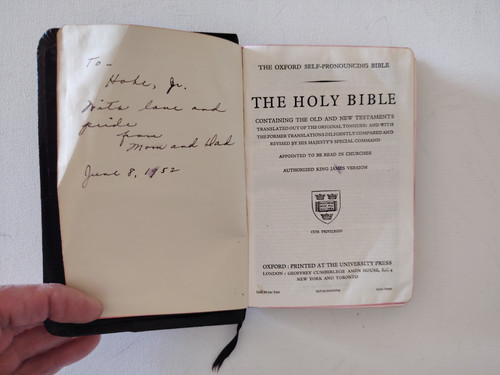 To -
Hobe, Jr.
With love and
pride
from
Mom and Dad
June 8, 1952
THE OXFORD SELF-PRONOUNCING BIBLE
THE HOLY BIBLE
CONTAINING THE OLD AND NEW TESTAMENTS
TRANSLATED OUT OF THE ORIGINAL TONGUES: AND WITH
THE FORMER TRANSLATIONS DILIGENTLY COMPARED AND
REVISED BY HIS MAJESTY'S SPECIAL COMMAND
APPOINTED TO BE READ IN CHURCHES
AUTHORIZED KING JAMES VERSION
CUM PRIVILEGIO
OXFORD: PRINTED AT THE UNIVERSITY PRESS
LONDON: GEOFFREY CUMBERLEGE AMEN HOUSE, E.C.4
NEW YORK AND TORONTO